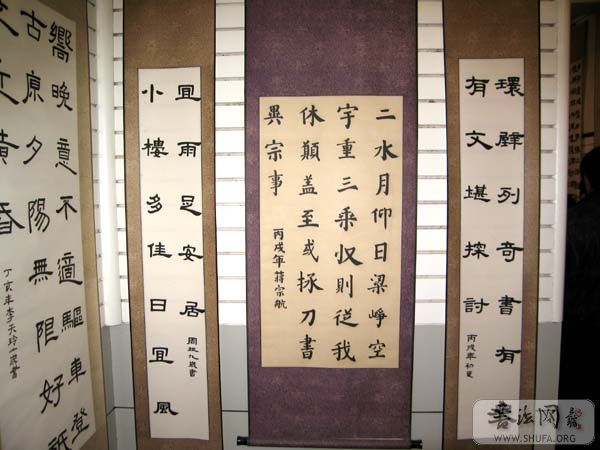 環壁列奇書有
有文堪探討
丙戌年初夏
二水月仰日梁崢空
宇重三乘収則從我
休顛盖至或拯刀書
異宗事
丙戌年蔣宗航
小樓多佳日宜風
宜雨足安居
嚮晚意不適驅車登
古原夕陽無限好祇
近黃昏
丁亥年李天玲
書法网
WWW.SHUFA.ORG